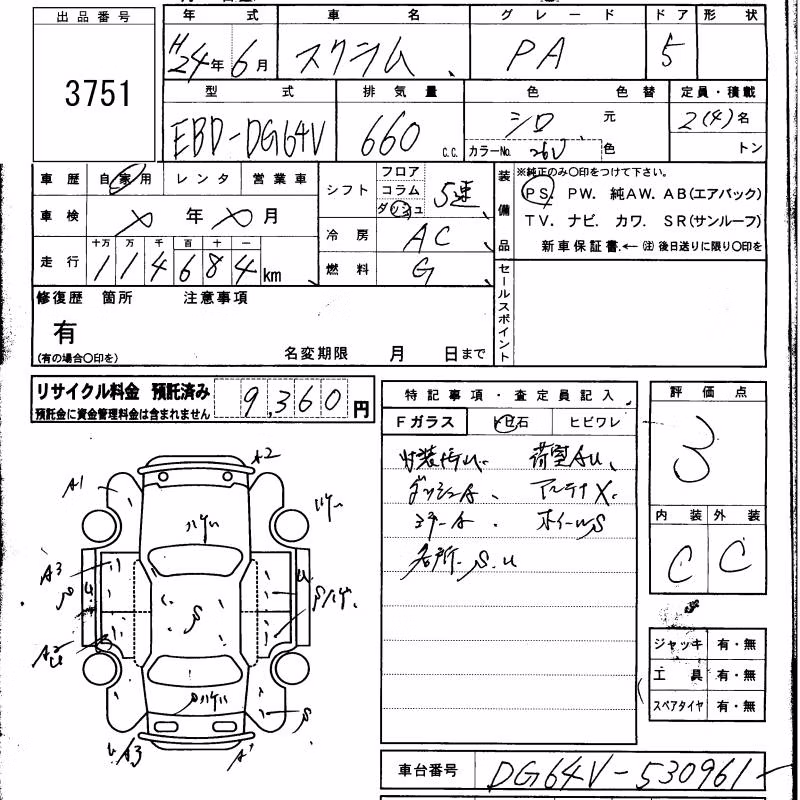 出品番号
3751
年 式 車 名 グ レ ー ド ド ア 形 状
H24年 6月 スクラム PA 5
型 式 排 気 量 色 色 替 定員・積載
EBD-DG64V 660 c.c. シロ 元 2(4)名
カラーNo. 26U 色 トン
車 歴 自 家 用 レ ン タ 営 業 車
車 検 年 月
十万 万 千 百 十 一
走 行 114684 km
シフト フロア コラム ダッシュ 5速
冷 房 AC
燃 料 G
装備品 ※純正のみ〇印をつけて下さい。
PS. PW. 純AW. AB(エアバック)
TV. ナビ. カワ. SR(サンルーフ)
新車保証書.← ㊟ 後日送りに限り〇印を
セールスポイント
修復歴 箇所 注意事項
有
(有の場合〇印を)
名変期限 月 日まで
リサイクル料金 預託済み 9,360 円
預託金に資金管理料金は含まれません
特 記 事 項 ・ 査 定 員 記 入
Fガラス 飛石 ヒビワレ
荷室AU、
ダッシュA、 アンテナX.
コナーA. ホイールS
各所.S.U
評 価 点
3
内 装 外 装
C C
ジャッキ 有・無
工 具 有・無
スペアタイヤ 有・無
A2
A1
A3
S
U
A2
U
S
A3
A1
車台番号 DG64V-530961